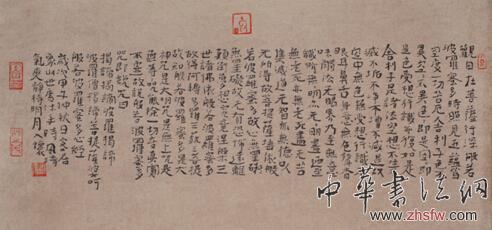 觀自在菩薩行深般若
波羅蜜多時照見五蘊皆
空度一切苦厄舍利子色不
異空空不異色色即是空空即
是色受想行識亦復如是
舍利子是諸法空相不生不
滅不垢不淨不增不減是故
空中無色無受想行識无
眼耳鼻舌身意無色聲香
味觸法无眼界乃至無意
識界無無明亦无無明盡乃至
無老死亦无老死盡无苦
集滅道无智亦無得以
无所得故菩提薩埵依般
若波羅蜜多故心無罣礙
無罣礙故无有恐怖遠離
顛倒夢想究竟涅槃三
世諸佛依般若波羅蜜多
故得阿耨多羅三藐三菩提
故知般若波羅蜜多是大
神咒是大明咒是无上咒是無
等等咒能除一切苦真實
不虛故說般若波羅蜜多
咒即說咒曰
揭諦揭諦波羅揭諦
波羅僧揭諦菩提薩婆訶
般若波羅蜜多心經
歲次甲子仲秋日
象山
氣爽靜待明月入懷
中華書法網
www.zhsfw.com